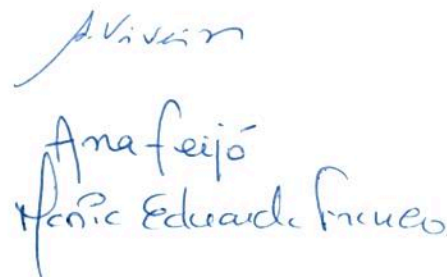 A. Viveiros
Ana Feijó
Maria Eduarda Franco